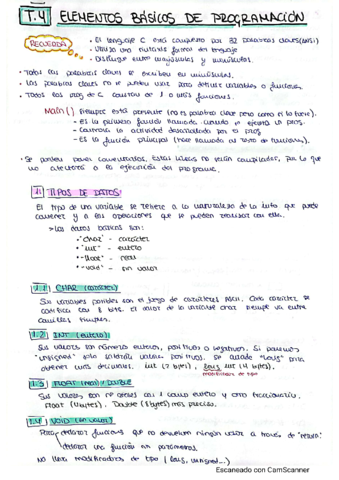 T.4 ELEMENTOS BÁSICOS DE PROGRAMACIÓN
RECUERDA
• El lenguaje C está compuesto por 32 palabras claves (ANSI)
• Utiliza una sintaxis formal del lenguaje
• Distingue entre mayúsculas y minúsculas.
• Todas las palabras claves se escriben en minúsculas.
• Las palabras claves no se pueden usar para definir variables o funciones.
• Todos los prog de C constan de 1 o más funciones.
Main() Siempre está presente (no es palabra clave pero como si lo fuera).
- Es la primera función llamada cuando se ejecuta la prog.
- Controla la actividad desarrollada por el prog
- Es la función principal (hace llamada al resto de funciones).
• Se pueden poner comentarios. Estas líneas no serán compiladas, por lo que
no afectarán a la ejecución del programa.
1. TIPOS DE DATOS:
El tipo de una variable se refiere a la naturaleza de la info que puede
contener y a las operaciones que se pueden realizar con ella.
Los datos básicos son:
• "char" - carácter
• "int" - entero
• "float" - real
• "void" - sin valor
1.1 CHAR (carácter)
Sus variables posibles son el juego de caracteres ASCII. Cada carácter se
codifica con 8 bits. El valor de la variable char siempre va entre
comillas simples.
1.2 INT (entero)
Sus valores son números enteros, positivos o negativos. Si ponemos
"unsigned" solo saldrán valores positivos, se añade "long" para
obtener más decimales. int (2 bytes), long int (4 bytes).
modificadores de tipo
1.3 FLOAT (real) / DOUBLE
Sus valores son nº reales con 1 coma entera y otra fraccionaria.
Float (4 bytes), Double (8 bytes) más preciso.
1.4 VOID (sin valor)
Para declarar funciones que no devuelven ningún valor a través de "return".
declarar una función sin parámetros
No lleva modificadores de tipo (long, unsigned...)
Escaneado con CamScanner